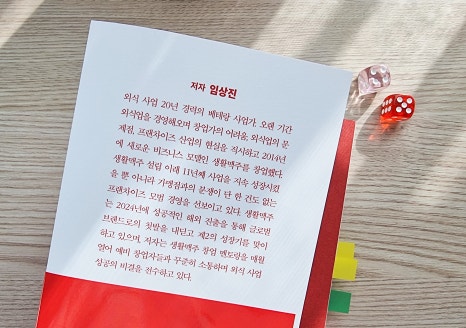 저자 임상진
외식 사업 20년 경력의 베테랑 사업가. 오랜 기간
외식업을 경영해오며 창업가의 어려움, 외식업의 문
제점, 프랜차이즈 산업의 현실을 직시하고 2014년
에 새로운 비즈니스 모델인 생활맥주를 창업했다.
생활맥주 설립 이래 11년째 사업을 지속 성장시켰
을 뿐 아니라 가맹점과의 분쟁이 단 한 건도 없는
프랜차이즈 모범 경영을 선보이고 있다. 생활맥주
는 2024년에 성공적인 해외 진출을 통해 글로벌
브랜드로의 첫발을 내딛고 제2의 성장기를 맞이
하고 있으며, 저자는 생활맥주 창업 멘토링을 매월
열어 예비 창업자들과 꾸준히 소통하며 외식 사업
성공의 비결을 전수하고 있다.